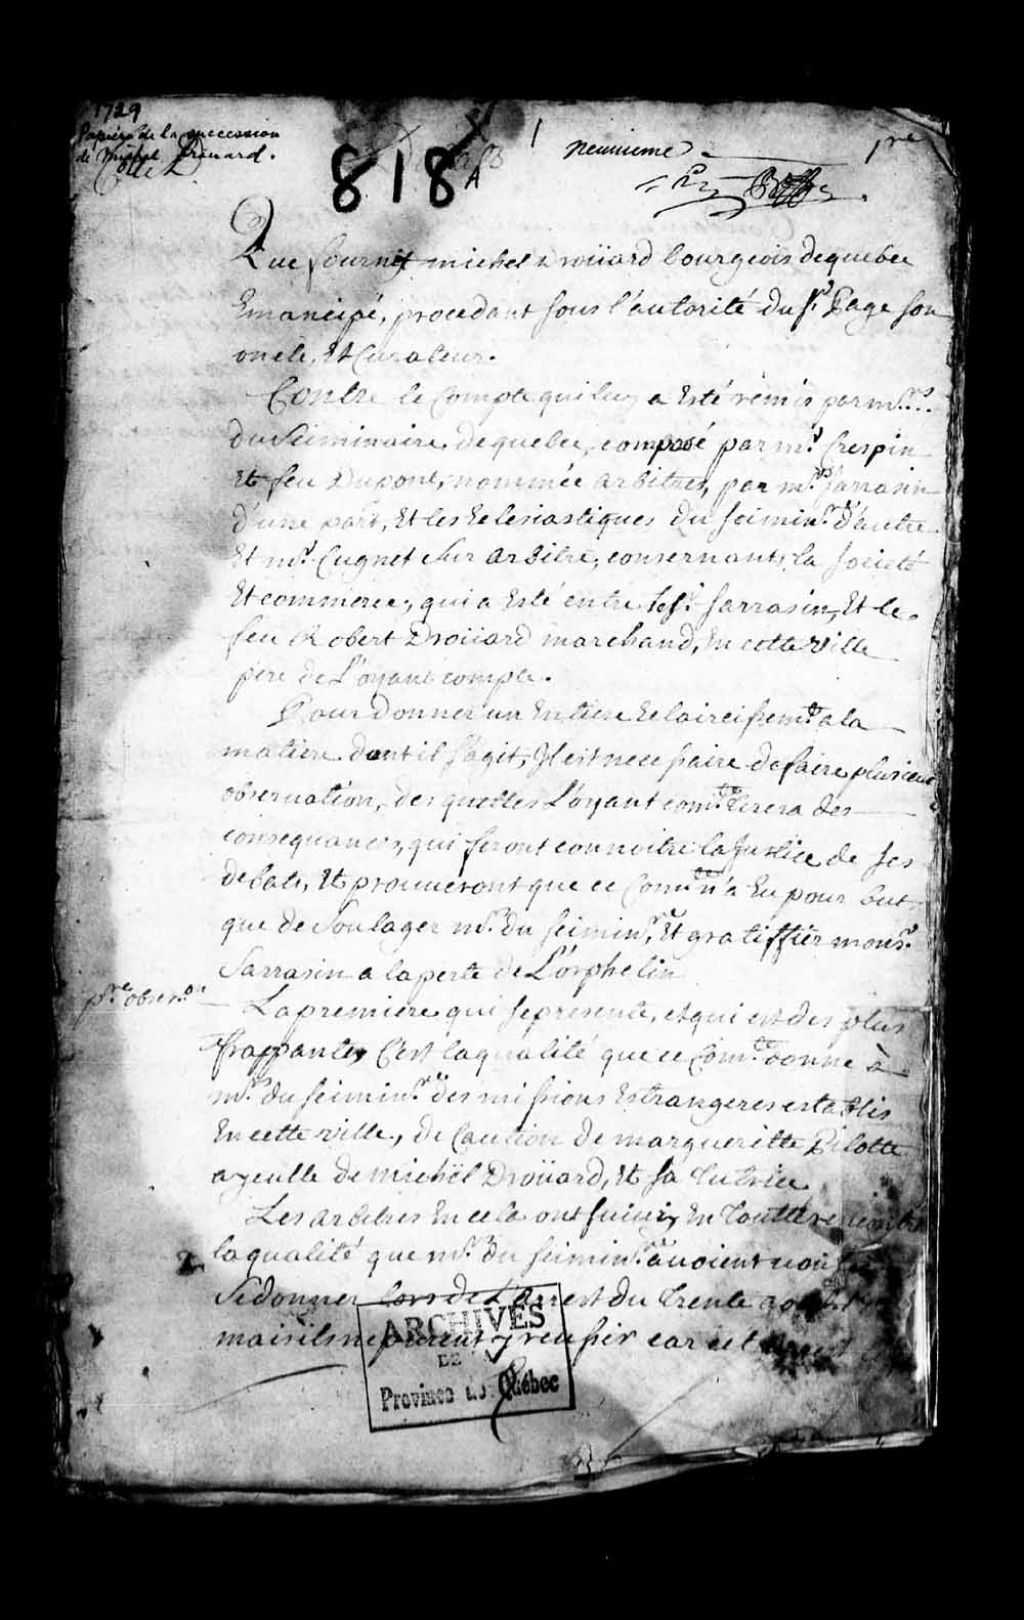 1729
Papiers de la succession
de Michel Drouard.
Cotte
818
A
neuuieme
1re
Que fournit michel Droüard bourgeois dequebec
Emancipé, procedant sous l'autorité du Sr. Page son
oncle, Et Curateur.
Contre le Compte qui luy a Esté rémis par mrs.
du Séminaire dequebec, composé par mr. Crespin
Et feu Dupont, nommée arbitres, par mr. Sarrasin
d'une part, Et les Eclesiastiques du seiminre. d'autre
Et mr. Cugnet sur arbitre, consernants la societé
Et commerce, qui a Esté entre le Sr. Sarrasin, Et le
feu Robert Droüard marchand, En cette ville
pere de L'oyant compte.
Pour donner un Entiere Eclaircissemt. a la
matiere dont il s'agit, Il est necessaire de faire plusieurs
obseruation, des quelles L'oyant comte. tirera des
consequances, qui feront connoitre la Justice de ses
debats, Et prouueront que ce Comte. n'a Eu pour but,
que de Soulager mrs. du seiminre, Et gratiffier monsr.
Sarrasin a la perte de L'orphelin
pre. obseron.
La premiere qui se presente, et qui est des plus
frappantes C'est la qualité que ce Comte. donne à
mrs. du seiminre. des missions Estrangeres establis
En cette ville, de Caution de margueritte Pilotte
ayeulle de michel Droüard, Et sa Tutrice
Les arbitres En cela ont suiuis En toutte
la qualité que mrs. du seiminre. auoient
Se donner lors de L'arrest du trente
mais ils ne purent y reussir car cet arrest
ARCHIVES
DE LA
Province de Québec